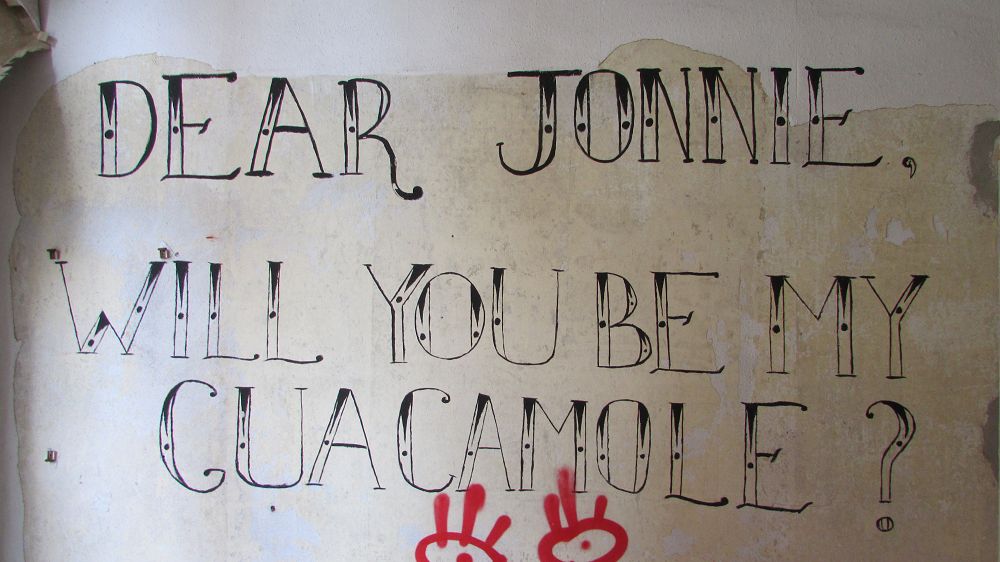 DEAR JONNIE,
WILL YOU BE MY
GUACAMOLE?